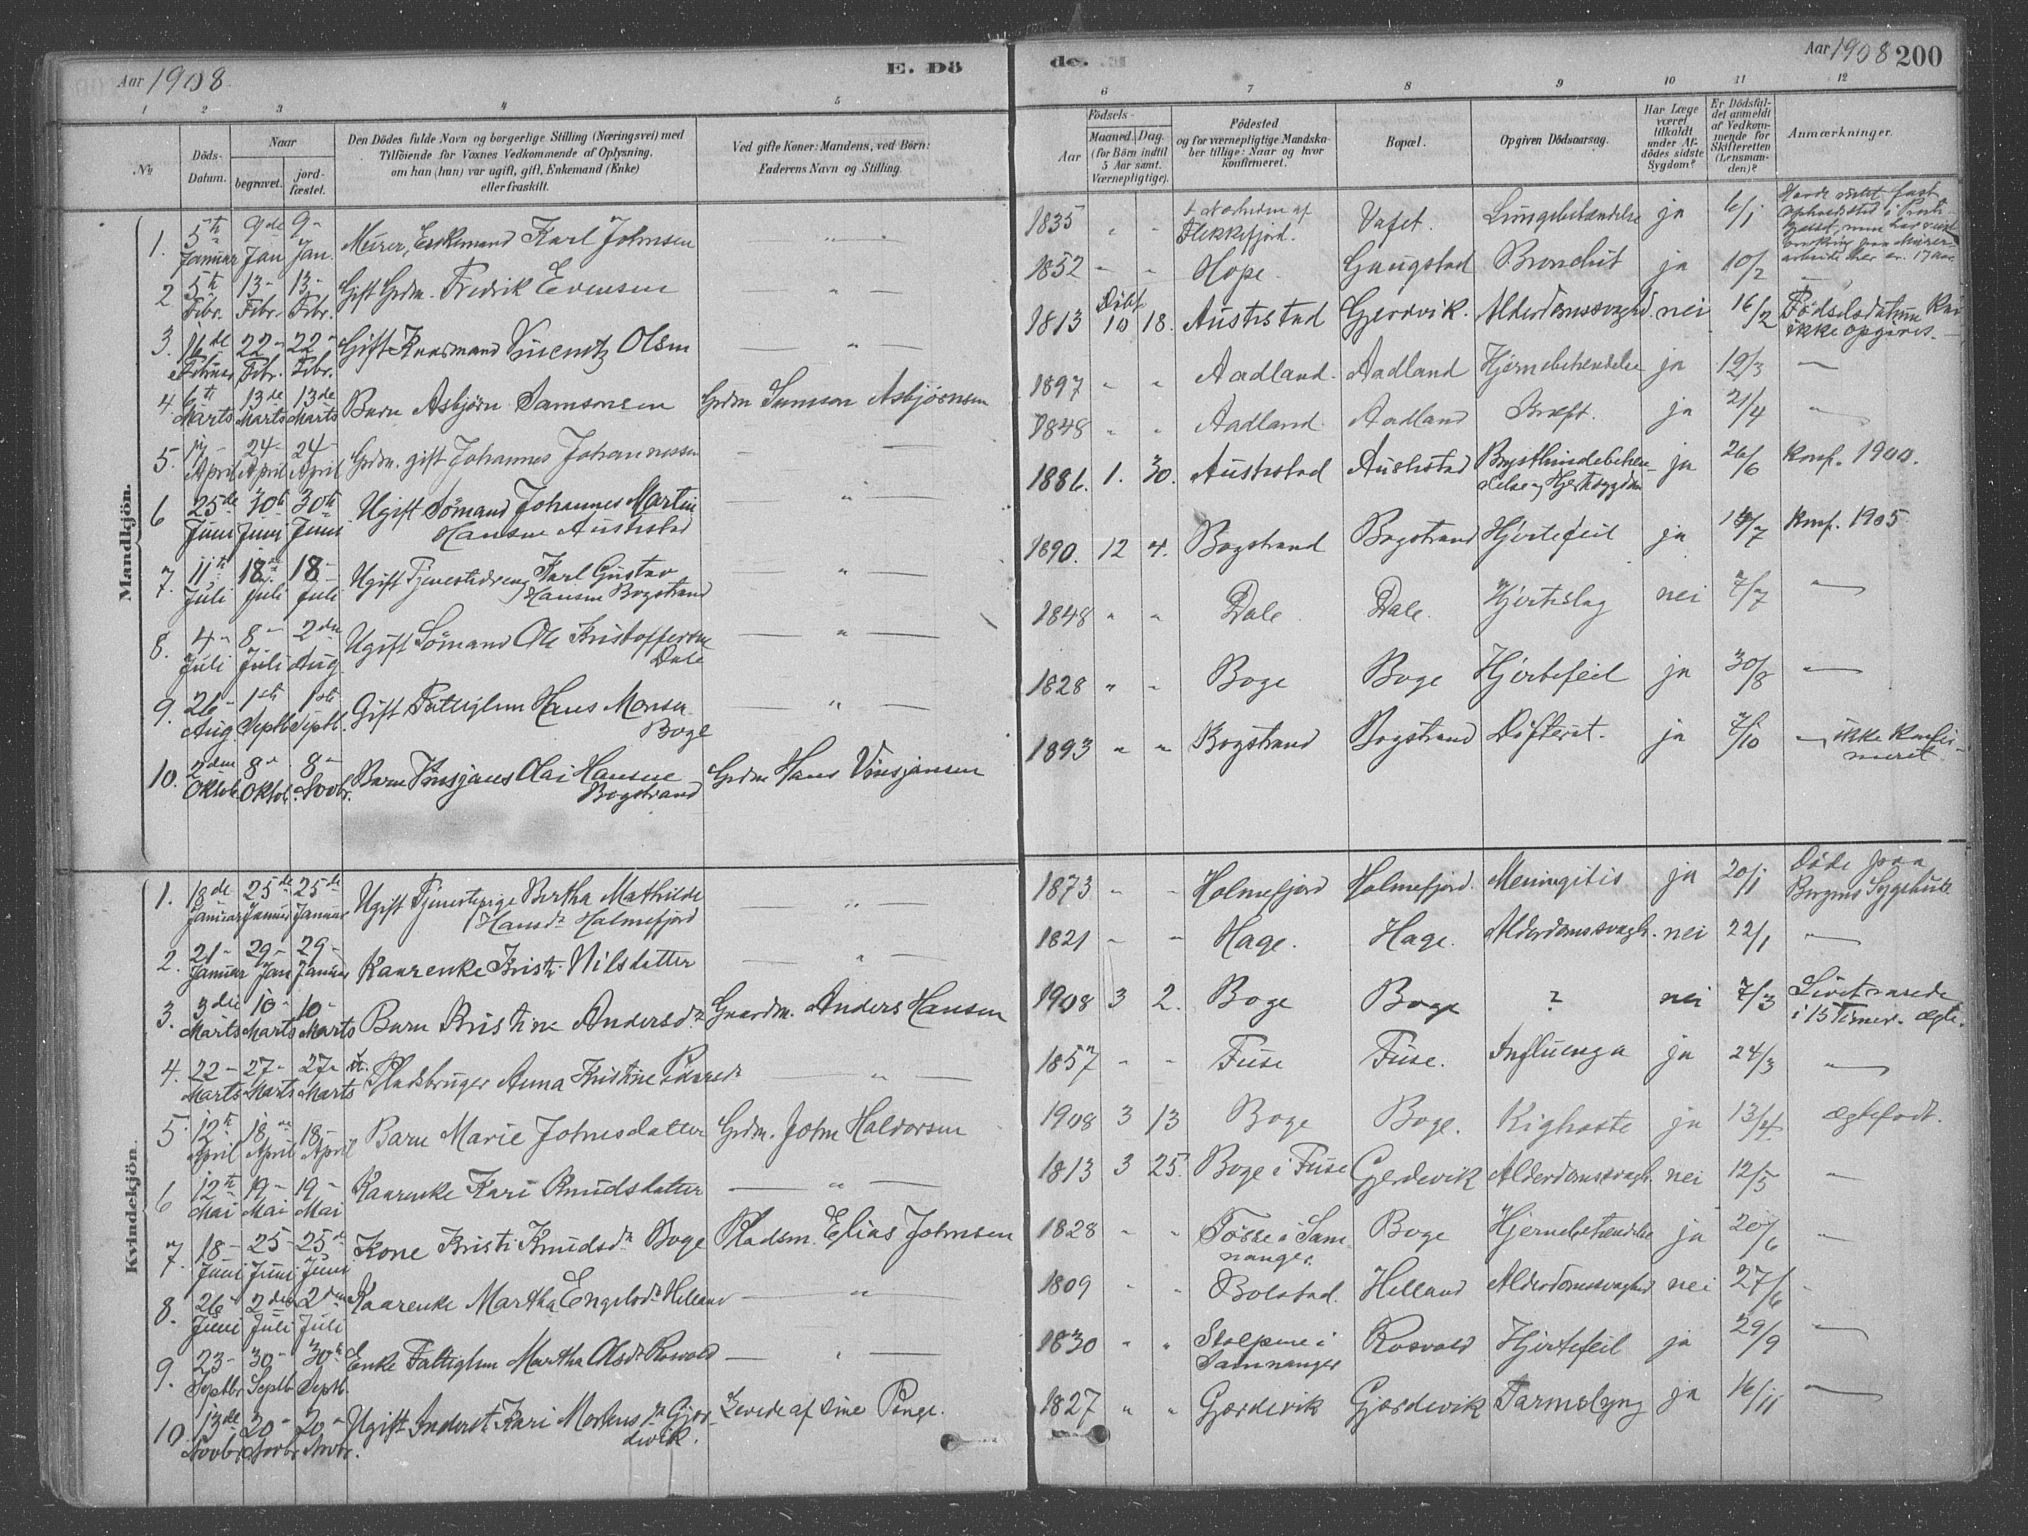 Aar 1908.
E. Dö
1 2 3 4 5
№
Döds-Datum.
Naar
begravet.
jord-fæstet.
Den Dödes fulde Navn og borgerlige Stilling (Næringsvei) med
Tilföiende for Voxnes Vedkommende af Oplysning,
om han (hun) var ugift, gift, Enkemand (Enke)
eller fraskilt.
Ved gifte Koner: Mandens, ved Börn:
Faderens Navn og Stilling.
Mandkjön.
1. 5th Januar 9de Jan 9- Jan. Murer, Enkemand Karl Johnsen
2 5th Febr. 13- Febr. 13- Febr. Gift Grdm. Fredrik Evensen
3. 16de Februar 22- Febr. 22- Febr. Gift Kaarmand Olsen
4. 6th Marts 13de Marts 13de Marts Barn Asbjørn Samsonsen Grdm Samson Asbjørnsen
5. 17- April 24- April 24- April Grdm. gift Johannes Johannessen
6 25de Juni 30th Juni 30th Juni Ugift Sømand Johannes Martin
Hansen Austestad
7. 11th Juli 18de Juli 18- Juli Ugift Tjenestedreng Karl Gustav
Hansen Bogstrand
8. 4- Juli 8- Juli 2den Aug Ugift Sømand Ole Kristoffersen
Dale
9. 26- Aug. 1ste Septb. 1ste Septb. Gift Fattiglem Hans Monsen
Boge
10. 2den Oktob. 8- Oktob. 8- Novbr. Barn Vinsjans Olai Hansen
Bogstrand Grdm Hans Vinsjansen
Kvindekjön.
1. 18de Januar 25de Januar 25de Januar Ugift Tjenestepige Bertha Mathilde
Hansdr Holmefjord
2. 21- Januar 29- Jan 29- Januar Kaarenke Kristi Nilsdatter
3. 3die Marts 10- Marts 10- Marts Barn Kristine Andersdr Gaardm. Anders Hansen
4. 22- Marts 27- Marts 27- Marts Pladsbruger Anna Kristine
5 12th April 18de April 18- April Barn Marie Johnsdatter Grdm. John Haldorsen
6 12th Mai 19- Mai 19- Mai Kaarenke Kari Knudsdatter
7. 18- Juni 25- Juni 25- Juni Kone Kristi Knudsdr Boge Pladsm. Elias Johnsen
8. 26- Juni 2den Juli 2den Juli Kaarenke Martha Engelsdr Helland
9. 23- Septbr 30- Septbr 30th Septb. Enke Fattiglem Martha Olsdr Rosvold
10. 13de Novbr 20- Novbr 20- Novbr. Ugift Inderst Kari Mortensdr Gjer-
devik. Levede af sine Penge.
de.
Aar 1908 200
6 7 8 9 10 11 12
Födsels-
Aar
Maaned. Dag.
(for Börn indtil
5 Aar samt
Værnepligtige).
Födested
og for værnepligtige Mandska-
ber tillige: Naar og hvor
konfirmeret.
Bopæl.
Opgiven Dödsaarsag.
Har Læge
været
tilkaldt
under Af-
dödes sidste
Sygdom?
Er Dödsfal-
det anmeldt
af Vedkom-
mende for
Skifteretten
(Lensman-
den)?
Anmærkninger.
1835 i Nærheden af
Flekkefjord. Vafet. Lungebetændelse ja 6/1
1852 Hope. Gaugstad Bronchit ja 10/2
1813 Døbt 10 18. Austestad Gjerdvik. Alderdomssvaghed. nei 16/2 Fødselsdatum kan
ikke opgives.
1897 Aadland. Aadland Hjernebetændelse ja 12/3
1848 Aadland. Aadland Kræft. ja 21/4
1886. 1. 30. Austestad Austestad Brysthindebetæn-
delse og Hjertesygdom ja 26/6 Konf. 1900.
1890. 12 4. Bogstrand Bogstrand Hjertefeil ja 14/7 Konf. 1905
1848 Dale Dale. Hjerteslag nei 7/7
1828 Boge Boge Hjertefeil ja 30/8
1893 Bogstrand Bogstrand Difterit. ja 7/10 ikke Konfir-
meret.
1873 Holmefjord Holmefjord. Meningitis ja 20/1 Døde paa
Bergens Sygehus
1821 Hage. Hage. Alderdomssvagh. nei 22/1
1908 3 2. Boge Boge ? nei 7/3 Livet varede
i 15 Timer. Ægte.
1857 Fuse Fuse. Influenza ja 24/3
1908 3 13 Boge Boge. Kighoste ja 13/4 Ægtefødt.
1813 3 25. Boge i Fuse Gjerdevik Alderdomssvagh. nei 12/5
1828 Tøsse i Sam-
nanger. Boge Hjernebetændelse ja 20/6
1809 Bolstad. Helland Alderdomssvaghed nei 27/6
1830 i
Samnanger Rosvold Hjertefeil ja 29/9
1827 Gjærdevik Gjærdevik Tarmslyng ja 16/11